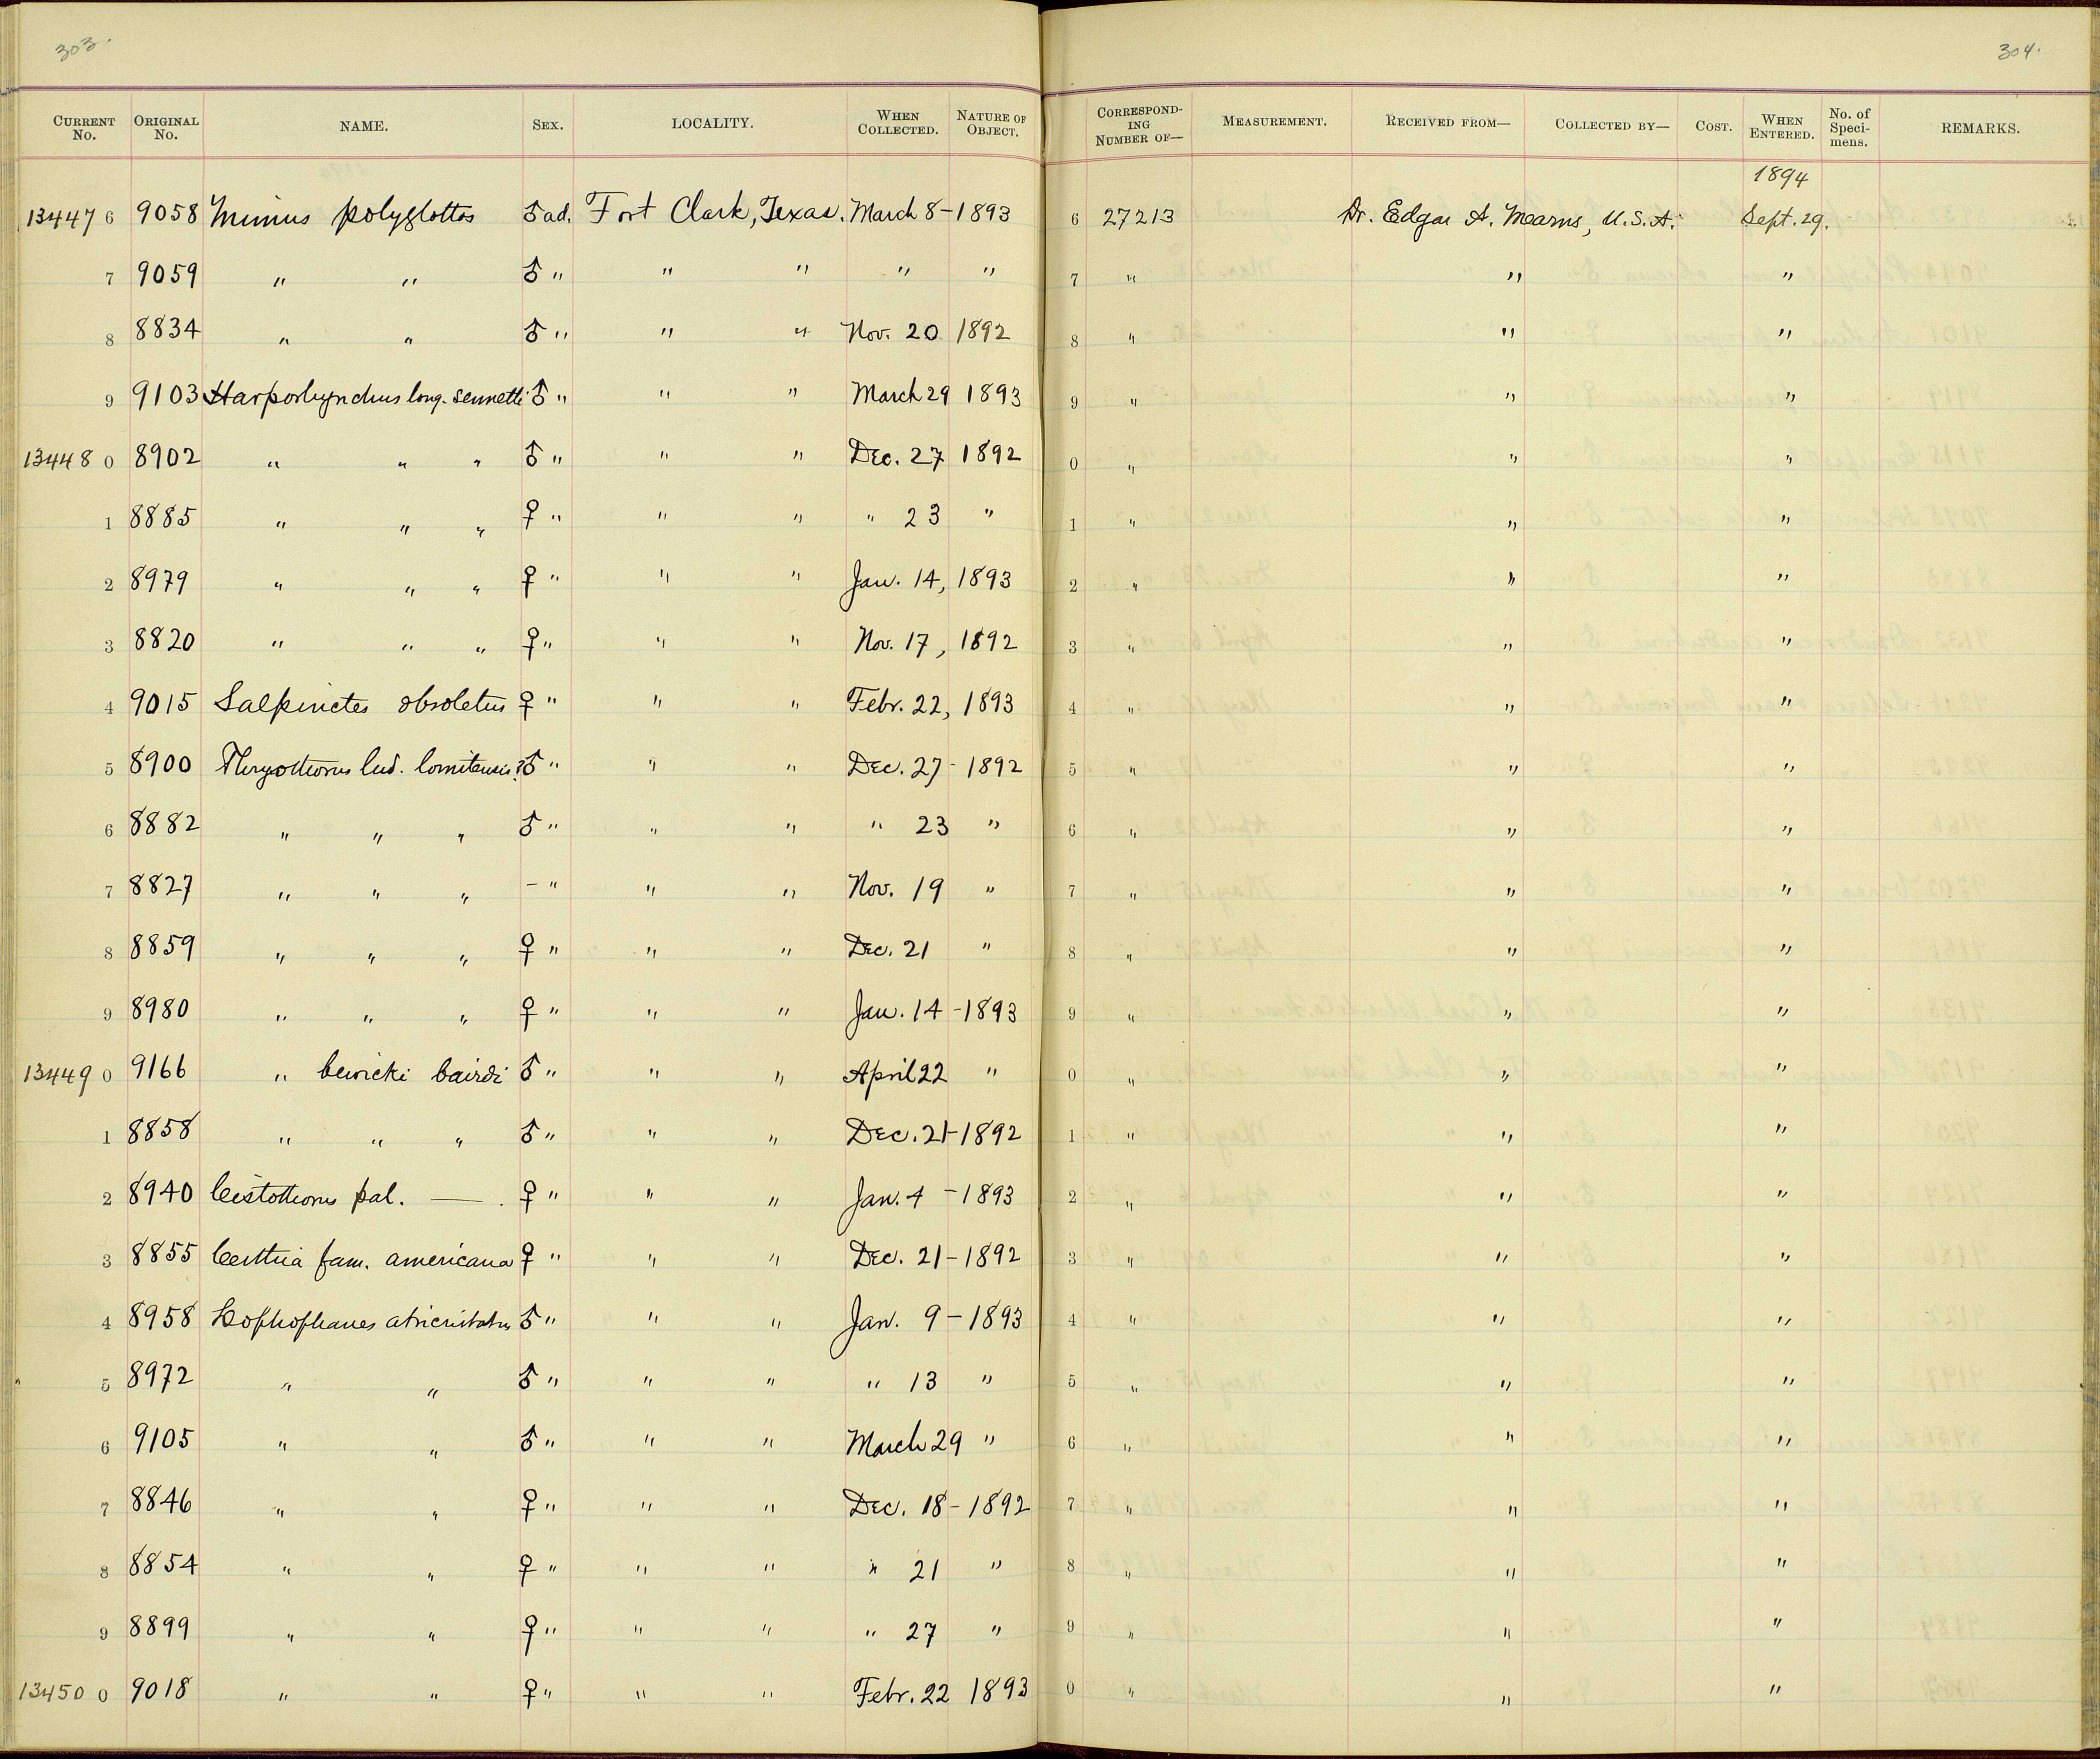 303.
304.
CURRENT No. ORIGINAL No. NAME. SEX. LOCALITY. WHEN COLLECTED. NATURE OF OBJECT. CORRESPONDING NUMBER OF— MEASUREMENT. RECEIVED FROM— COLLECTED BY— COST. WHEN ENTERED. No. of Specimens. REMARKS.
1894
13447 6 9058 Mimus polyglottos ♂ ad. Fort Clark, Texas. March 8-1893 6 27213 Dr. Edgar A. Mearns, U.S.A. Sept. 29.
7 9059 " " ♂ " " " " " 7 " " "
8 8834 " " ♂ " " " Nov. 20 1892 8 " " "
9 9103 Harporhynchus long. sennetti ♂ " " " March 29 1893 9 " " "
13448 0 8902 " " " ♂ " " " Dec. 27 1892 0 " " "
1 8885 " " " ♀ " " " " 23 " 1 " " "
2 8979 " " " ♀ " " " Jan. 14, 1893 2 " " "
3 8820 " " " ♀ " " " Nov. 17, 1892 3 " " "
4 9015 Salpinctes obsoletus ♀ " " " Febr. 22, 1893 4 " " "
5 8900 Thryothorus lud. lomitensis? ♂ " " " Dec. 27- 1892 5 " " "
6 8882 " " " ♂ " " " " 23 " 6 " " "
7 8827 " " " - " " " Nov. 19 " 7 " " "
8 8859 " " " ♀ " " " Dec. 21 " 8 " " "
9 8980 " " " ♀ " " " Jan. 14 -1893 9 " " "
13449 0 9166 " bewicki bairdi ♂ " " " April 22 " 0 " " "
1 8858 " " " ♂ " " " Dec. 21-1892 1 " " "
2 8940 Cistothorus pal. —— . ♀ " " " Jan. 4 -1893 2 " " "
3 8855 Certhia fam. americana ♀ " " " Dec. 21-1892 3 " " "
4 8958 Lophophanes atricristatus ♂ " " " Jan. 9 -1893 4 " " "
5 8972 " " ♂ " " " " 13 " 5 " " "
6 9105 " " ♂ " " " March 29 " 6 " " "
7 8846 " " ♀ " " " Dec. 18- 1892 7 " " "
8 8854 " " ♀ " " " " 21 " 8 " " "
9 8899 " " ♀ " " " " 27 " 9 " " "
13450 0 9018 " " ♀ " " " Febr. 22 1893 0 " " "